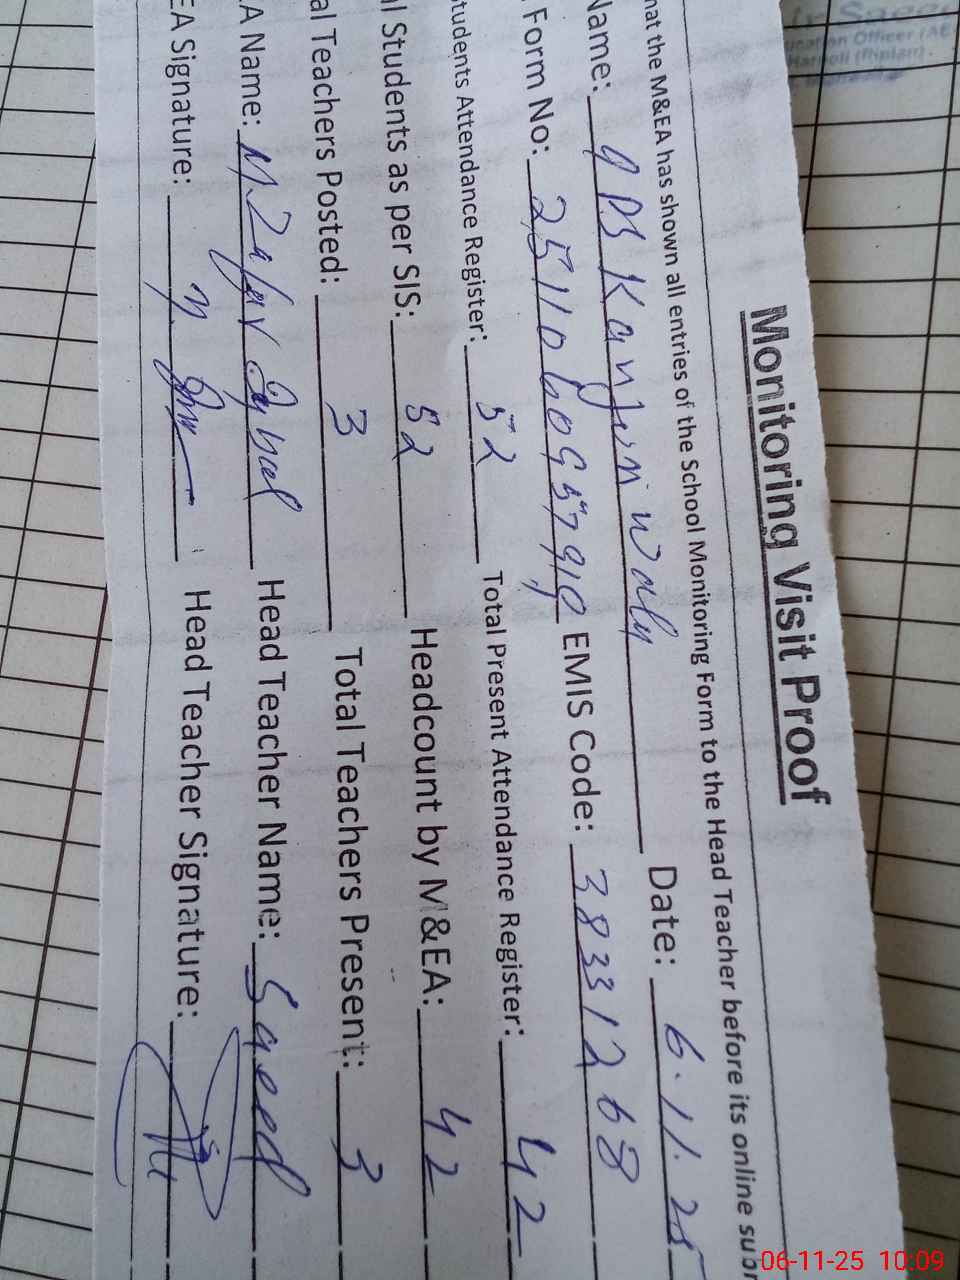 Monitoring Visit Proof
hat the M&EA has shown all entries of the School Monitoring Form to the Head Teacher before its online subm
Name: Date: 6.11.25
Form No: EMIS Code: 38331268
tudents Attendance Register: 52 Total Present Attendance Register: 42
l Students as per SIS: 52 Headcount by M&EA: 42
al Teachers Posted: 3 Total Teachers Present: 3
EA Name: M Zafar Iqbal Head Teacher Name: Saeed
EA Signature: Head Teacher Signature:
ucation Officer (AE
06-11-25 10:09